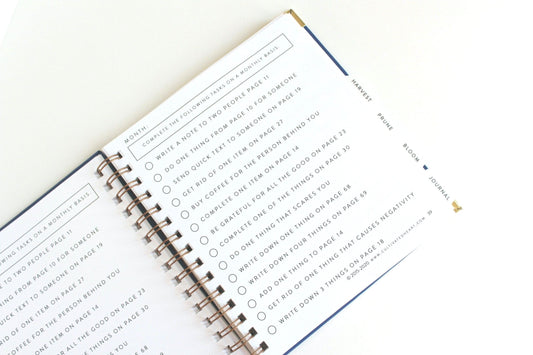 NG TASKS ON A MONTHLY BASIS
TO TWO PEOPLE PAGE 11
THING FROM PAGE 10 FOR SOMEONE
CK TEXT TO SOMEONE ON PAGE 19
D OF ONE ITEM ON PAGE 27
COFFEE FOR THE PERSON BEHIND YOU
E ONE ITEM ON PAGE 14
FOR ALL THE GOOD ON PAGE 23
OF THE THINGS ON PAGE 30
THAT SCARES YOU
THING ON PAGE 68
PAGE 69
MONTH:
COMPLETE THE FOLLOWING TASKS ON A MONTHLY BASIS
WRITE A NOTE TO TWO PEOPLE PAGE 11
DO ONE THING FROM PAGE 10 FOR SOMEONE
SEND QUICK TEXT TO SOMEONE ON PAGE 19
GET RID OF ONE ITEM ON PAGE 27
BUY COFFEE FOR THE PERSON BEHIND YOU
COMPLETE ONE ITEM ON PAGE 14
BE GRATEFUL FOR ALL THE GOOD ON PAGE 23
COMPLETE ONE OF THE THINGS ON PAGE 30
DO ONE THING THAT SCARES YOU
WRITE DOWN ONE THING ON PAGE 68
WRITE DOWN THINGS ON PAGE 69
ADD ONE THING TO PAGE 14
GET RID OF ONE THING THAT CAUSES NEGATIVITY
WRITE DOWN 3 THINGS ON PAGE 18
©2015-2020
HARVEST
PRUNE
BLOOM
JOURNAL